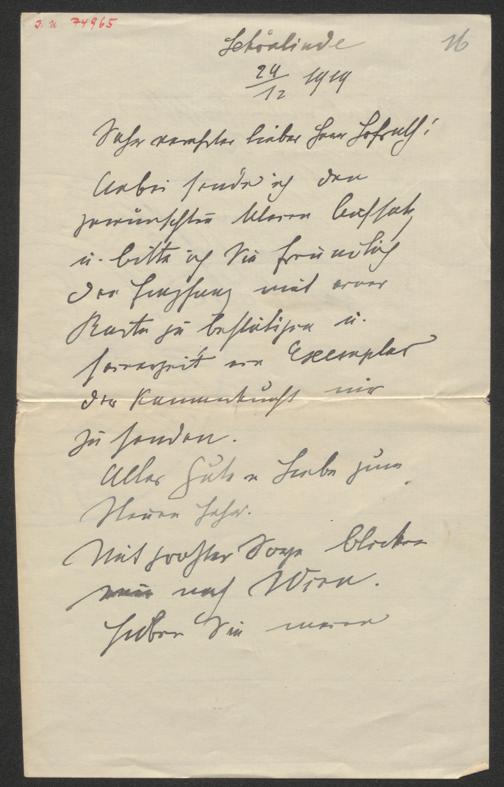 J. N. 74965
16
Schönlinde
24/12 1919
Sehr verehrter lieber Herr Hofrath!
Anbei sende ich den
gewünschten kleinen Aufsatz
u. bitte ich Sie freundlich
den Empfang mit einer
Karte zu bestätigen u.
seinerzeit ein Exemplar
der
zu senden.
Alles Gute u Liebe zum
Neuen Jahr.
Mit großer Sorge blicken
wir nach Wien.
Haben Sie